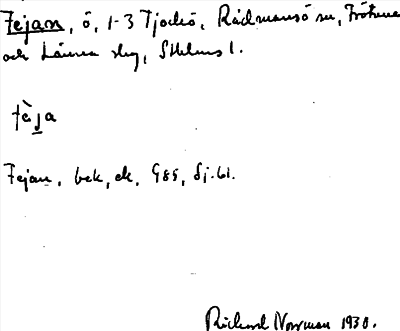 Fejan, ö, 1-3 Tjockö, Rådmansö sn, Frötuna
och Länna slg, Sthlms l.
fè̱ja
Fejan, bek, ek, G85, Sj.61.
Rickard Norrman 1930.